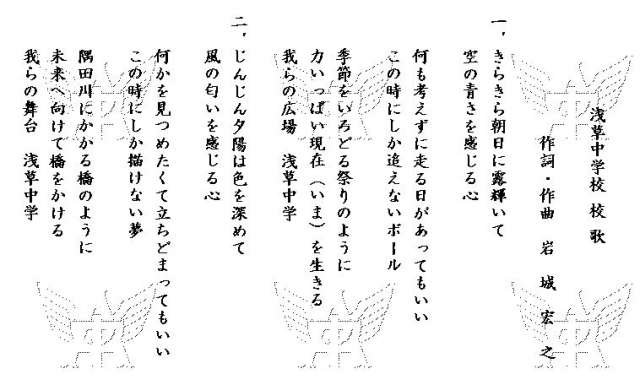 浅草中学校 校歌
作詞・作曲 岩城宏之
一、きらきら朝日に露輝いて
空の青さを感じる心
何も考えずに走る日があってもいい
この時にしか追えないボール
季節をいろどる祭りのように
力いっぱい現在（いま）を生きる
我らの広場 浅草中学
二、じんじん夕陽は色を深めて
風の匂いを感じる心
何かを見つめたくて立ちどまってもいい
この時にしか描けない夢
隅田川にかかる橋のように
未来へ向けて橋をかける
我らの舞台 浅草中学